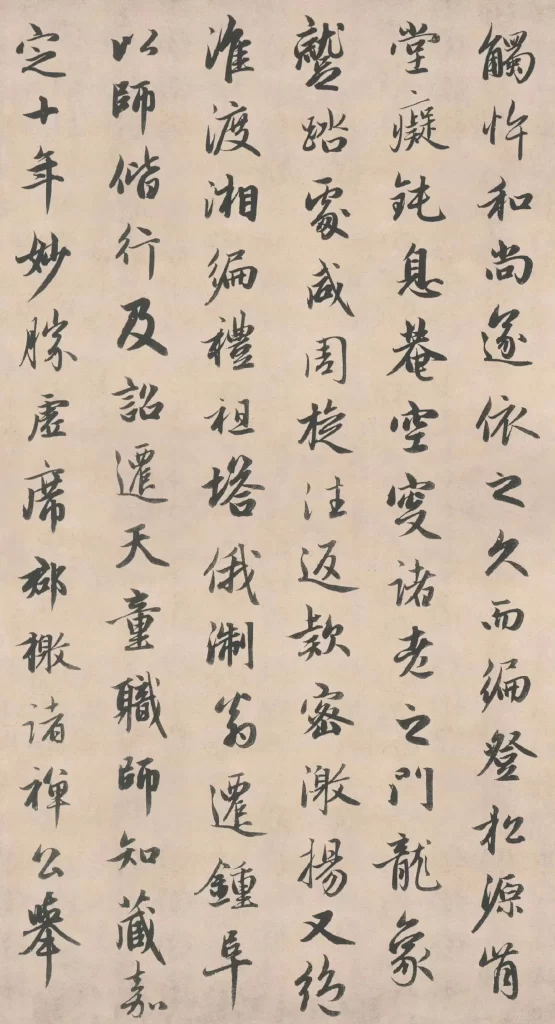 觸忤和尚遂依之久而編登松源肯
堂癡鈍息菴空叟諸老之門龍象
蹴踏處咸周旋法返款密激揚又絶
淮渡湘編禮祖塔俄淛翁遷鍾阜
以師偕行及詔遷天童職師知藏嘉
定十年妙勝虛席郡檄諸禪公舉